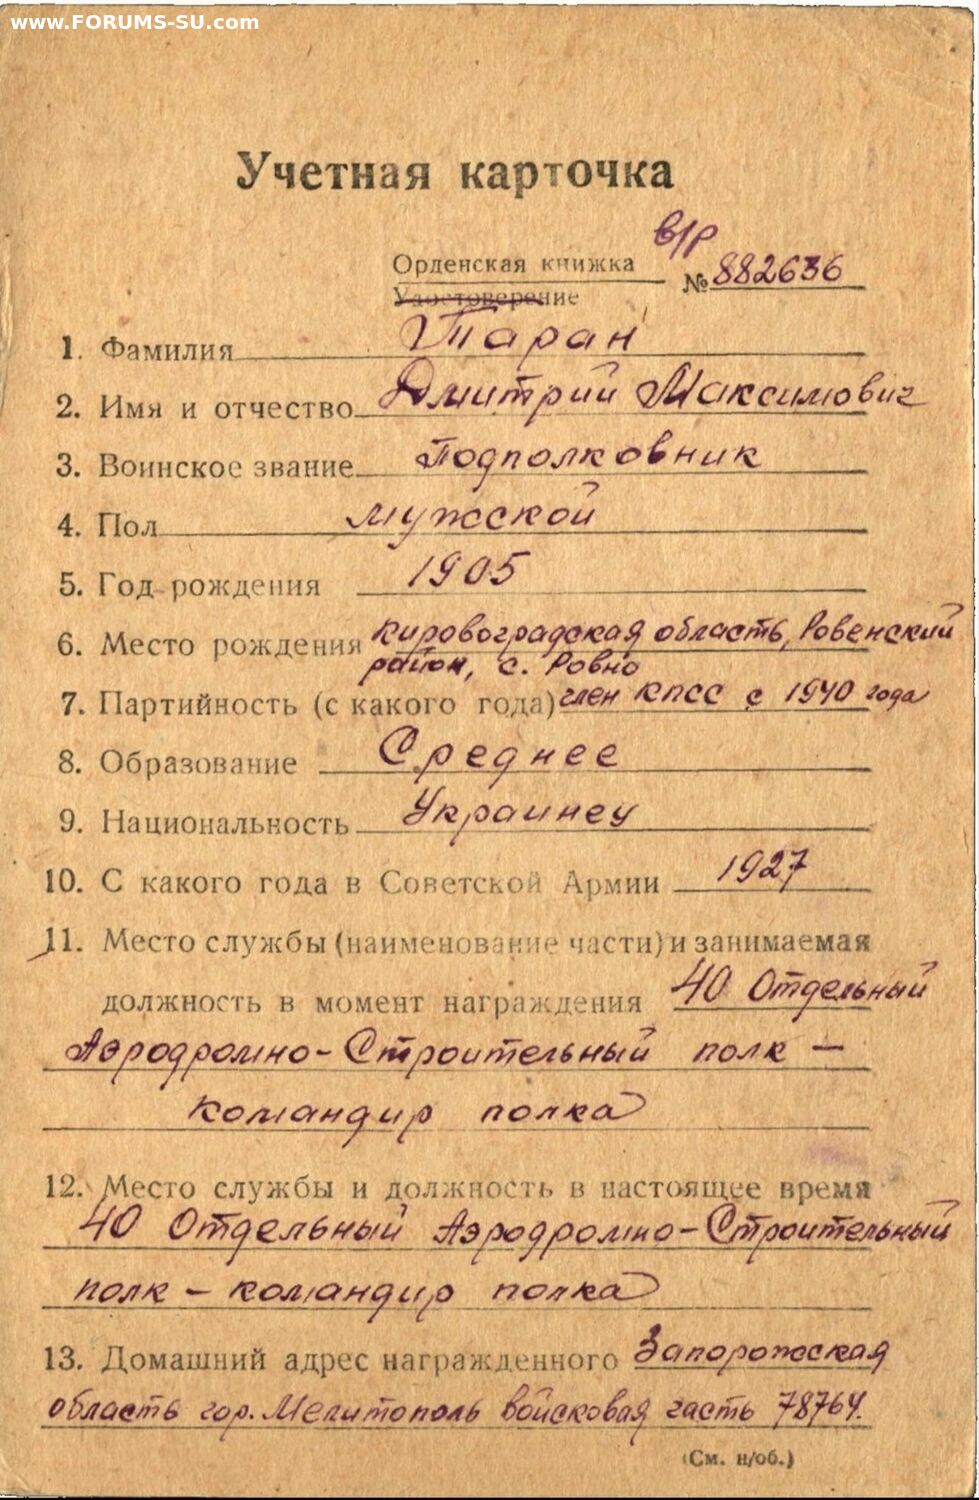 www.FORUMS-SU.com
Учетная карточка
в/р
Орденская книжка № 882636
Удостоверение
1. Фамилия Таран
2. Имя и отчество Дмитрий Максимович
3. Воинское звание Подполковник
4. Пол мужской
5. Год рождения 1905
6. Место рождения Кировоградская область, Ровенский
район, с. Ровно
7. Партийность (с какого года) член КПСС с 1940 года
8. Образование Среднее
9. Национальность Украинец
10. С какого года в Советской Армии 1927
11. Место службы (наименование части) и занимаемая
должность в момент награждения 40 Отдельный
Аэродромно-Строительный полк –
командир полка
12. Место службы и должность в настоящее время
40 Отдельный Аэродромно-Строительный
полк – командир полка
13. Домашний адрес награжденного Запорожская
область гор. Мелитополь войсковая часть 78764.
(См. н/об.)